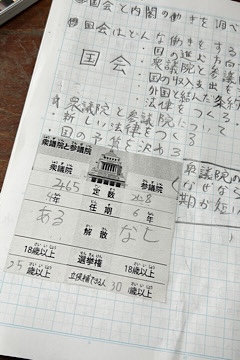 国会と内閣の働きを調べ
国会はどんな働きをする
国会
・国の進む方向
・衆議院と参議
・国の収入支出を
・外国と結んだ条約
・法律をつくる
衆議院と参議院について
・新しい法律をつくる
・国の予算を決める
衆議院の
なぜなら
期が短い
衆議院と参議院
衆議院 参議院
465 定数 248
4年 任期 6年
ある 解散 なし
18歳以上 選挙権 18歳以上
25歳以上 立候補できる人 30歳以上